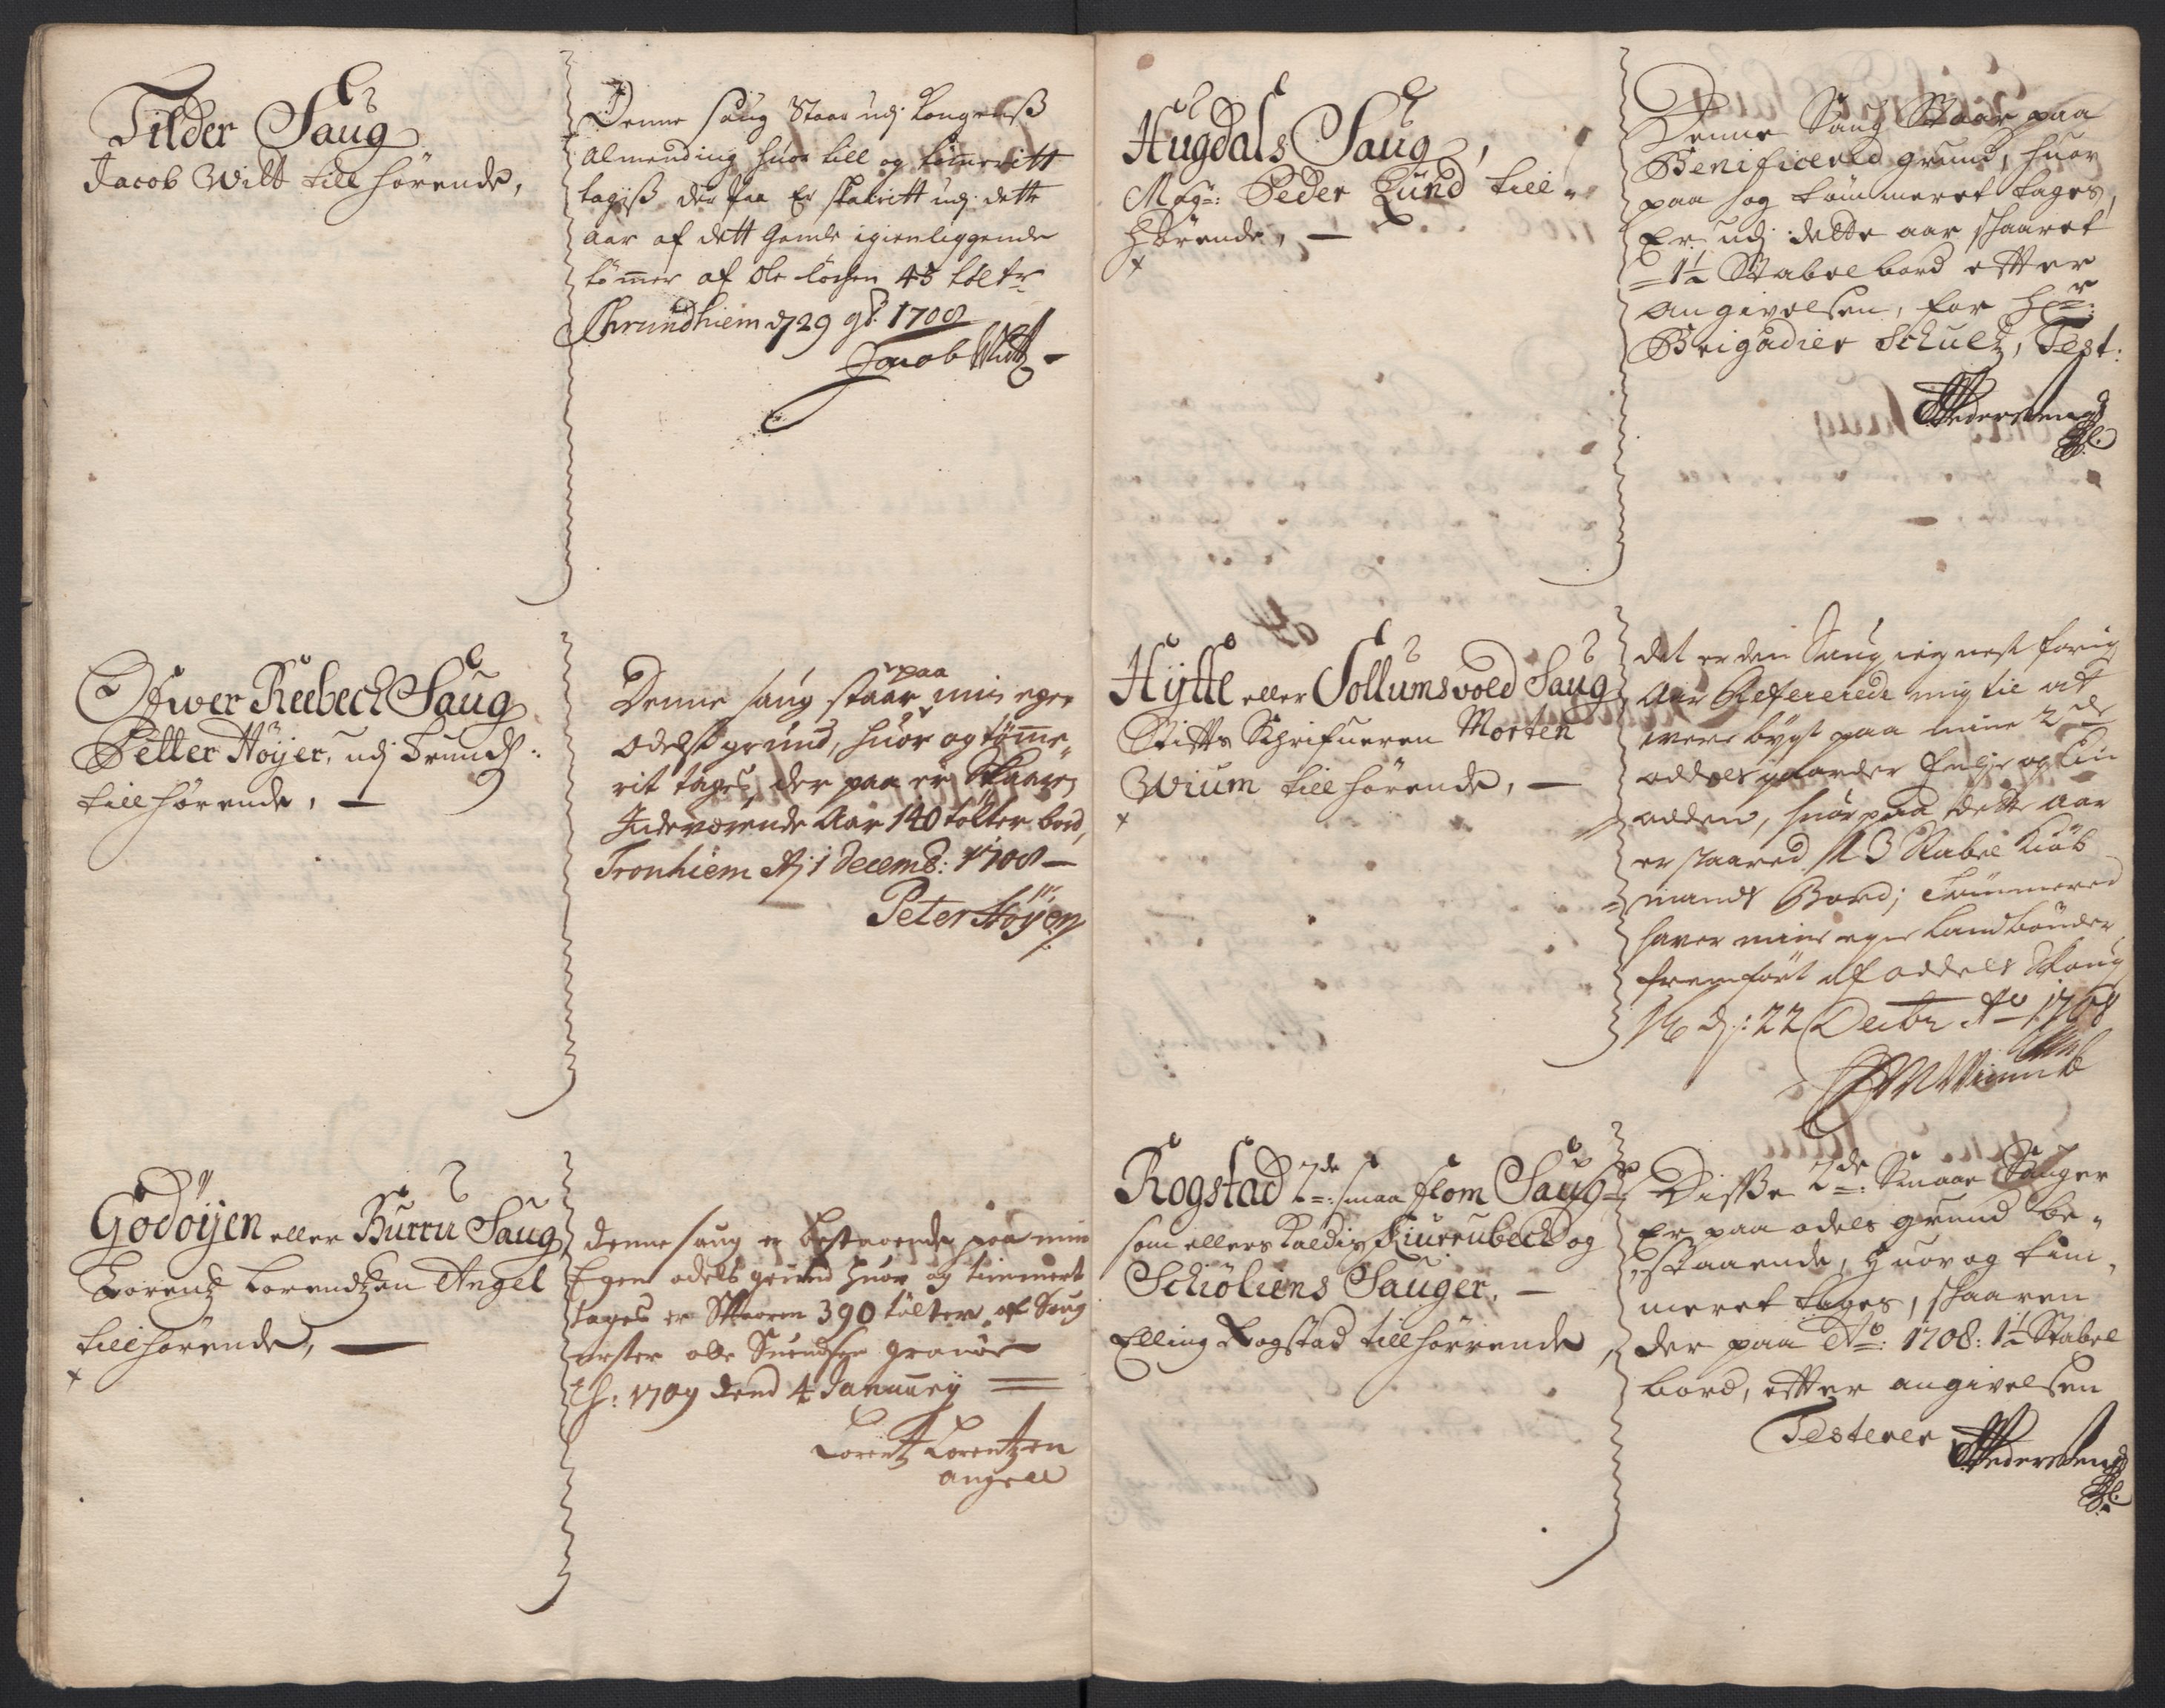 Tilder Saug
Jacob Witt till hörende,
Denne saug Staar udj Kongenß
Almending huor till og tömmeritt
tagiß der paa Er skaaritt udj dette
aar af dett gamle igienliggende
tömer af Ole 45 tölter
Thrundhiem d 29 9br. 1708
Jacob Witt
Ofwer Reebech Saug
Petter Höyer, udj Trundh:
till hörende, —
Denne saug staar paa min egen
odelß grund, huor og tömme„
rit tages, der paa er Skaaren
Indeværende Aar 140 tölter bord,
Tronhiem 1 Decemb: 1708 —
Peter Höyer
Godöyen eller Burru Saug
Lorentz Lorendtzen Angel
till hörende, —
denne saug er bestaaende paa min
Egen odels grund huor og timmert
tages er Skaaren 390 tölter, af Saug
mester olle Suendsen
Th: 1709 dend 4 January
Lorentz Lorentzen
angell
Hugdals Saug,
Mag: Peder Lund till„
hörende, —
Denne Saug Staar paa
Benificered grund, huor
paa og tömmeret tages,
Er udj dette aar skaaret
1½ Stabel bord effter
angivelsen, for Hr:
Brigadier Schultz, Test:
Hytte eller Sollumsvold Saug
Stifts Schrifueren Morten
Wium till hörende, —
det er den Saug ieg nest forig
Aar Refererede mig til at
were bygt paa mine 2de
oddels gaarder og
odden, huor paa dette Aar
er skaared 3 Stabel Kiöb
mands Bord; Tömmered
haver mine egne Landbönder
fremfört af oddels Skoug
d: 22 Decbr Ao 1708
MWium
Rogstad 2de: smaa flom Saug
som ellers Kaldis Kiurrubech og
Schiöliens Sauger. —
Elling Rogstad till hörrende,
Disse 2de: Smaae Sauger
Er paa odels grund be„
staaende, Huor og tim„
meret tages, skaaren
der paa Ao: 1708: 1½ Stabel
bord, effter angivelsen
Testerer